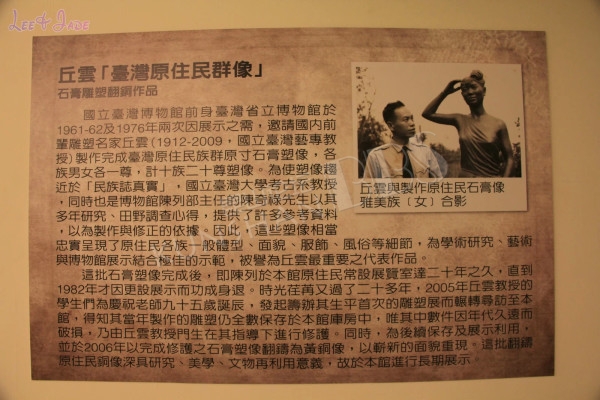 Lee & Jade
丘雲「臺灣原住民群像」
石膏雕塑翻銅作品
國立臺灣博物館前身臺灣省立博物館於
1961-62及1976年兩次因展示之需,邀請國內前
輩雕塑名家丘雲(1912-2009,國立臺灣藝專教
授)製作完成臺灣原住民族群原寸石膏塑像,各
族男女各一尊,計十族二十尊塑像。為使塑像趨
近於「民族誌真實」,國立臺灣大學考古系教授
,同時也是博物館陳列部主任的陳奇祿先生以其
多年研究、田野調查心得,提供了許多參考資料
,以為製作與修正的依據。因此,這些塑像相當
忠實呈現了原住民各族一般體型、面貌、服飾、風俗等細節,為學術研究、藝術
與博物館展示結合極佳的示範,被譽為丘雲最重要之代表作品。
這批石膏塑像完成後,即陳列於本館原住民常設展覽室達二十年之久,直到
1982年才因更設展示而功成身退。時光荏苒又過了二十多年,2005年丘雲教授的
學生們為慶祝老師九十五歲誕辰,發起籌辦其生平首次的雕塑展而輾轉尋訪至本
館,得知其當年製作的雕塑仍全數保存於本館庫房中,唯其中數件因年代久遠而
破損,乃由丘雲教授門生在其指導下進行修護。同時,為後續保存及展示利用,
並於2006年以完成修護之石膏塑像翻鑄為黃銅像,以嶄新的面貌重現。這批翻鑄
原住民銅像深具研究、美學、文物再利用意義,故於本館進行長期展示。
丘雲與製作原住民石膏像
雅美族(女)合影